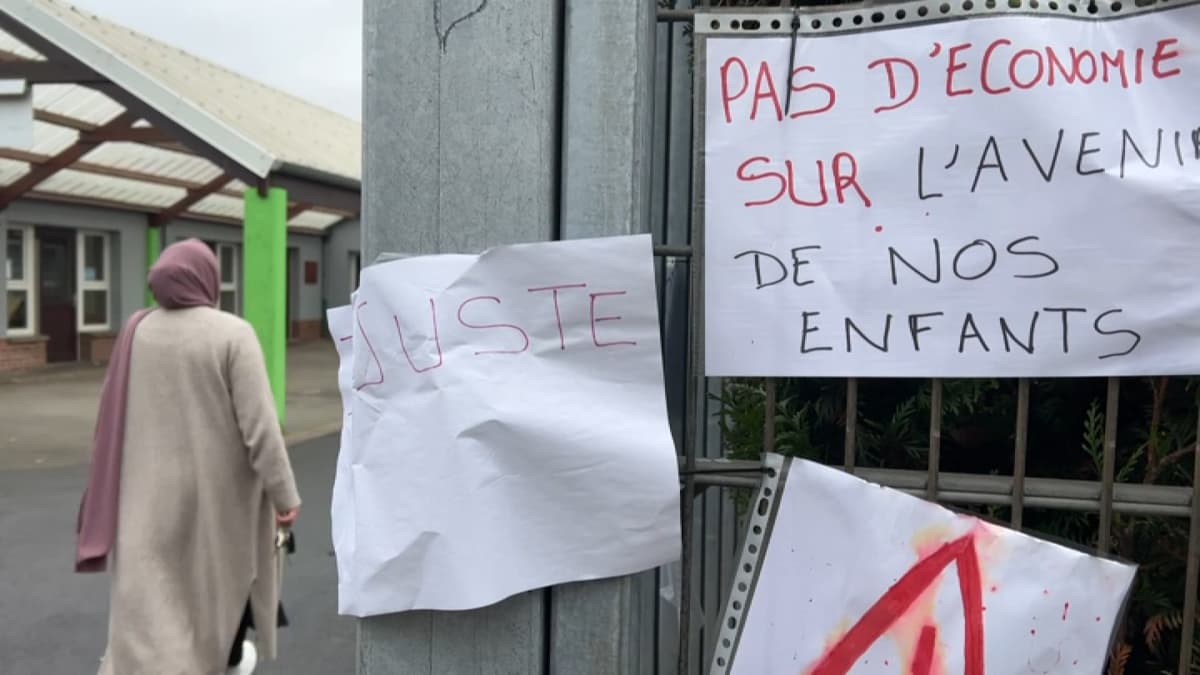 PAS D'ECONOMIE
SUR L'AVENIR
DE NOS
ENFANTS
JUSTE